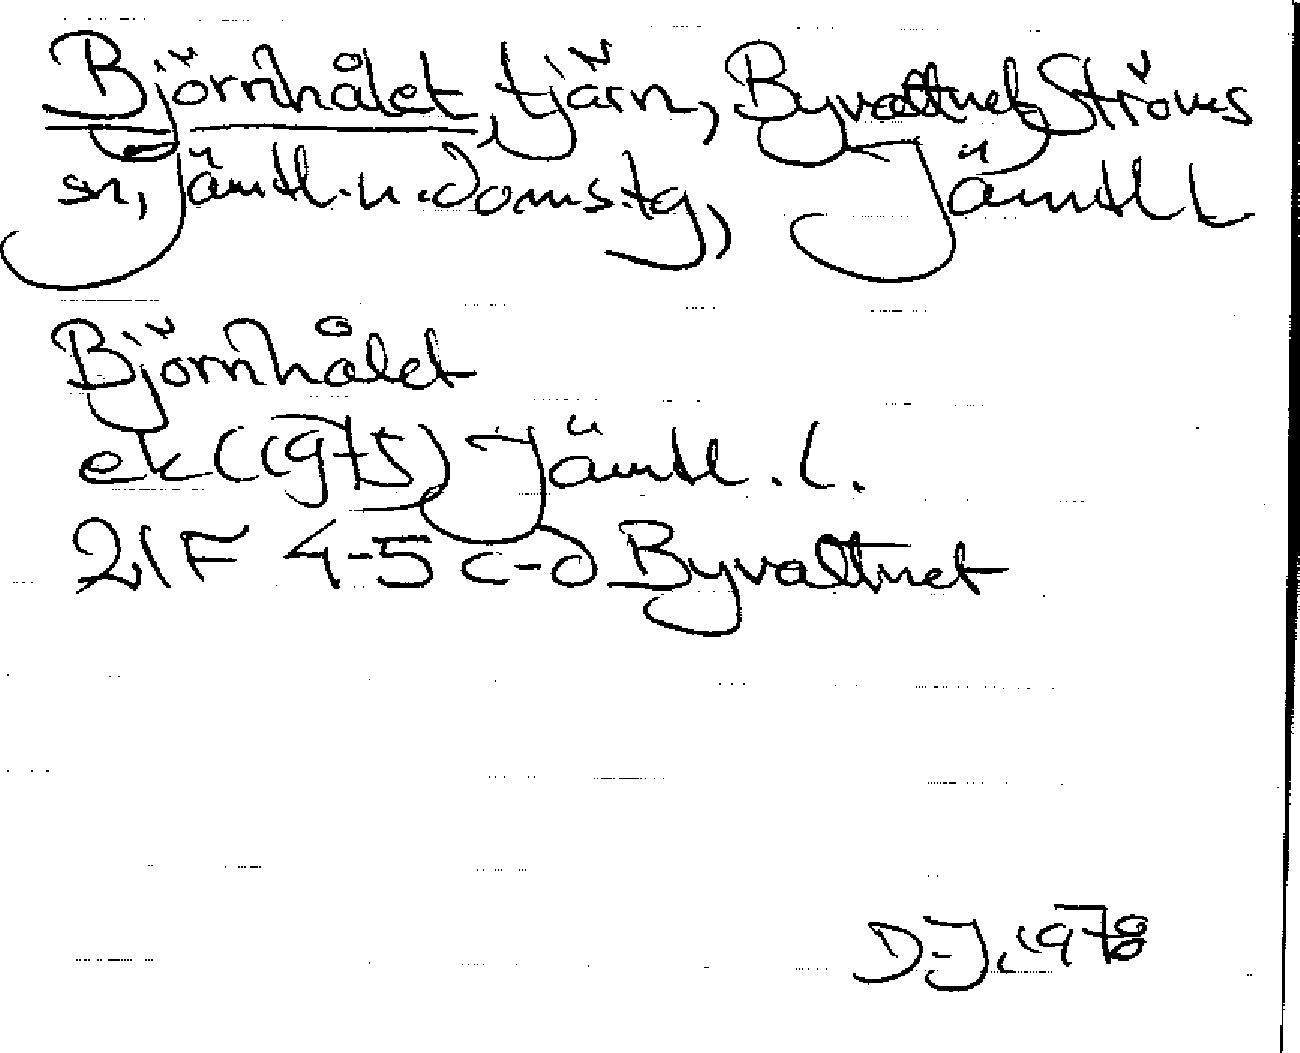 Björnhålet, tjärn, Byvattnet, Ströms
sn, Jämtl. n. domstg, Jämtl l
Björnhålet
ek (1975) Jämtl. l.
21F 4-5 c-d Byvattnet
D-J. 1978